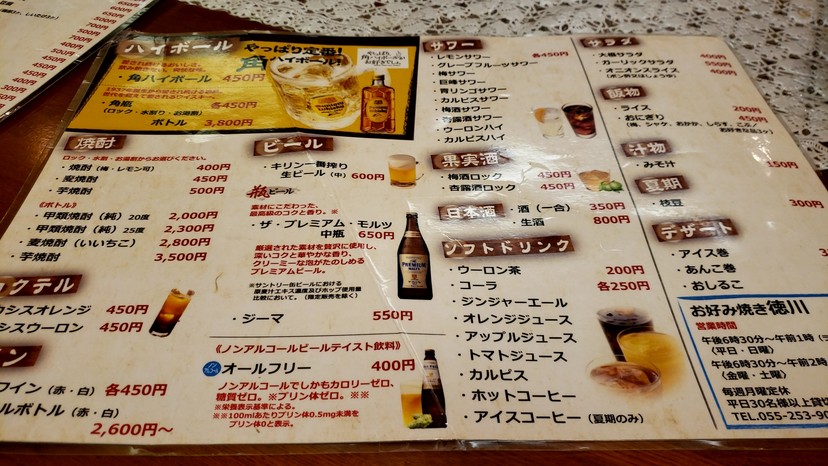 ハイボール
やっぱり定番!
角ハイボール!
・角ハイボール 450円
・角瓶 各450円
(ロック・水割り・お湯割)
ボトル 3,800円
焼酎
ロック・水割・お湯割からお選びください。
・焼酎(梅・レモン可) 400円
・麦焼酎 450円
・芋焼酎 500円
《ボトル》
・甲類焼酎(純)20度 2,000円
・甲類焼酎(純)25度 2,300円
・麦焼酎(いいちこ) 2,800円
・芋焼酎 3,500円
カクテル
カシスオレンジ 450円
カシスウーロン 450円
ワイン(赤・白)各450円
ルボトル(赤・白)
2,600円〜
ビール
・キリン一番搾り
生ビール(中) 600円
瓶ビール
素材にこだわった、
最高級のコクと香り。※
・ザ・プレミアム・モルツ
中瓶 650円
厳選された素材を贅沢に使用し、
深いコクと華やかな香り、
クリーミーな泡がたのしめる
プレミアムビール。
※サントリー缶ビールにおける
原麦汁エキス濃度及びホップ使用量
比較において。(限定販売を除く)
・ジーマ 550円
《ノンアルコールビールテイスト飲料》
オールフリー 400円
ノンアルコールでしかもカロリーゼロ、
糖質ゼロ。※プリン体ゼロ。※※
※栄養表示基準による。
※※100mlあたりプリン体0.5mg未満を
プリン体0と表示。
サワー
・レモンサワー 各450円
・グレープフルーツサワー
・梅サワー
・巨峰サワー
・青リンゴサワー
・カルピスサワー
・梅酒サワー
・杏露酒サワー
・ウーロンハイ
・カルピスハイ
果実酒
・梅酒ロック 450円
・杏露酒ロック 450円
日本酒
・酒(一合) 350円
・生酒 800円
ソフトドリンク
・ウーロン茶 200円
・コーラ 各250円
・ジンジャーエール
・オレンジジュース
・アップルジュース
・トマトジュース
・カルピス
・ホットコーヒー
・アイスコーヒー(夏期のみ)
サラダ
・大根サラダ 400円
・ガーリックサラダ 550円
・オニオンスライス 400円
(ポン酢又はしょうゆ)
飯物
・ライス 200円
・おにぎり 450円
(梅、シャケ、おかか、しらす、こぶ/
お好きな品3ヶ)
汁物
・みそ汁 150円
夏期
・枝豆 300円
デザート
・アイス巻
・あんこ巻
・おしるこ
お好み焼き徳川
営業時間
午後6時30分〜午前1時
(平日・日曜)
午後6時30分〜午前2時
(金曜・土曜)
毎週月曜定休
平日30名様以上貸切
TEL.055-253-90